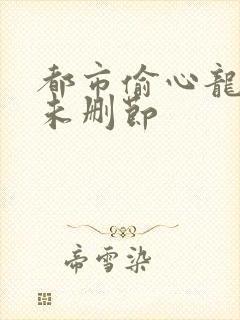 都市偷心龍
未删節
帝雪染